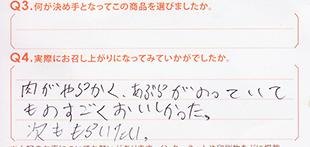 Q3.何が決め手となってこの商品を選びましたか。
Q4.実際にお召し上がりになってみていかがでしたか。
肉がやらかく、あぶらがのっていて
ものすごくおいしかった。
次ももらいたい。